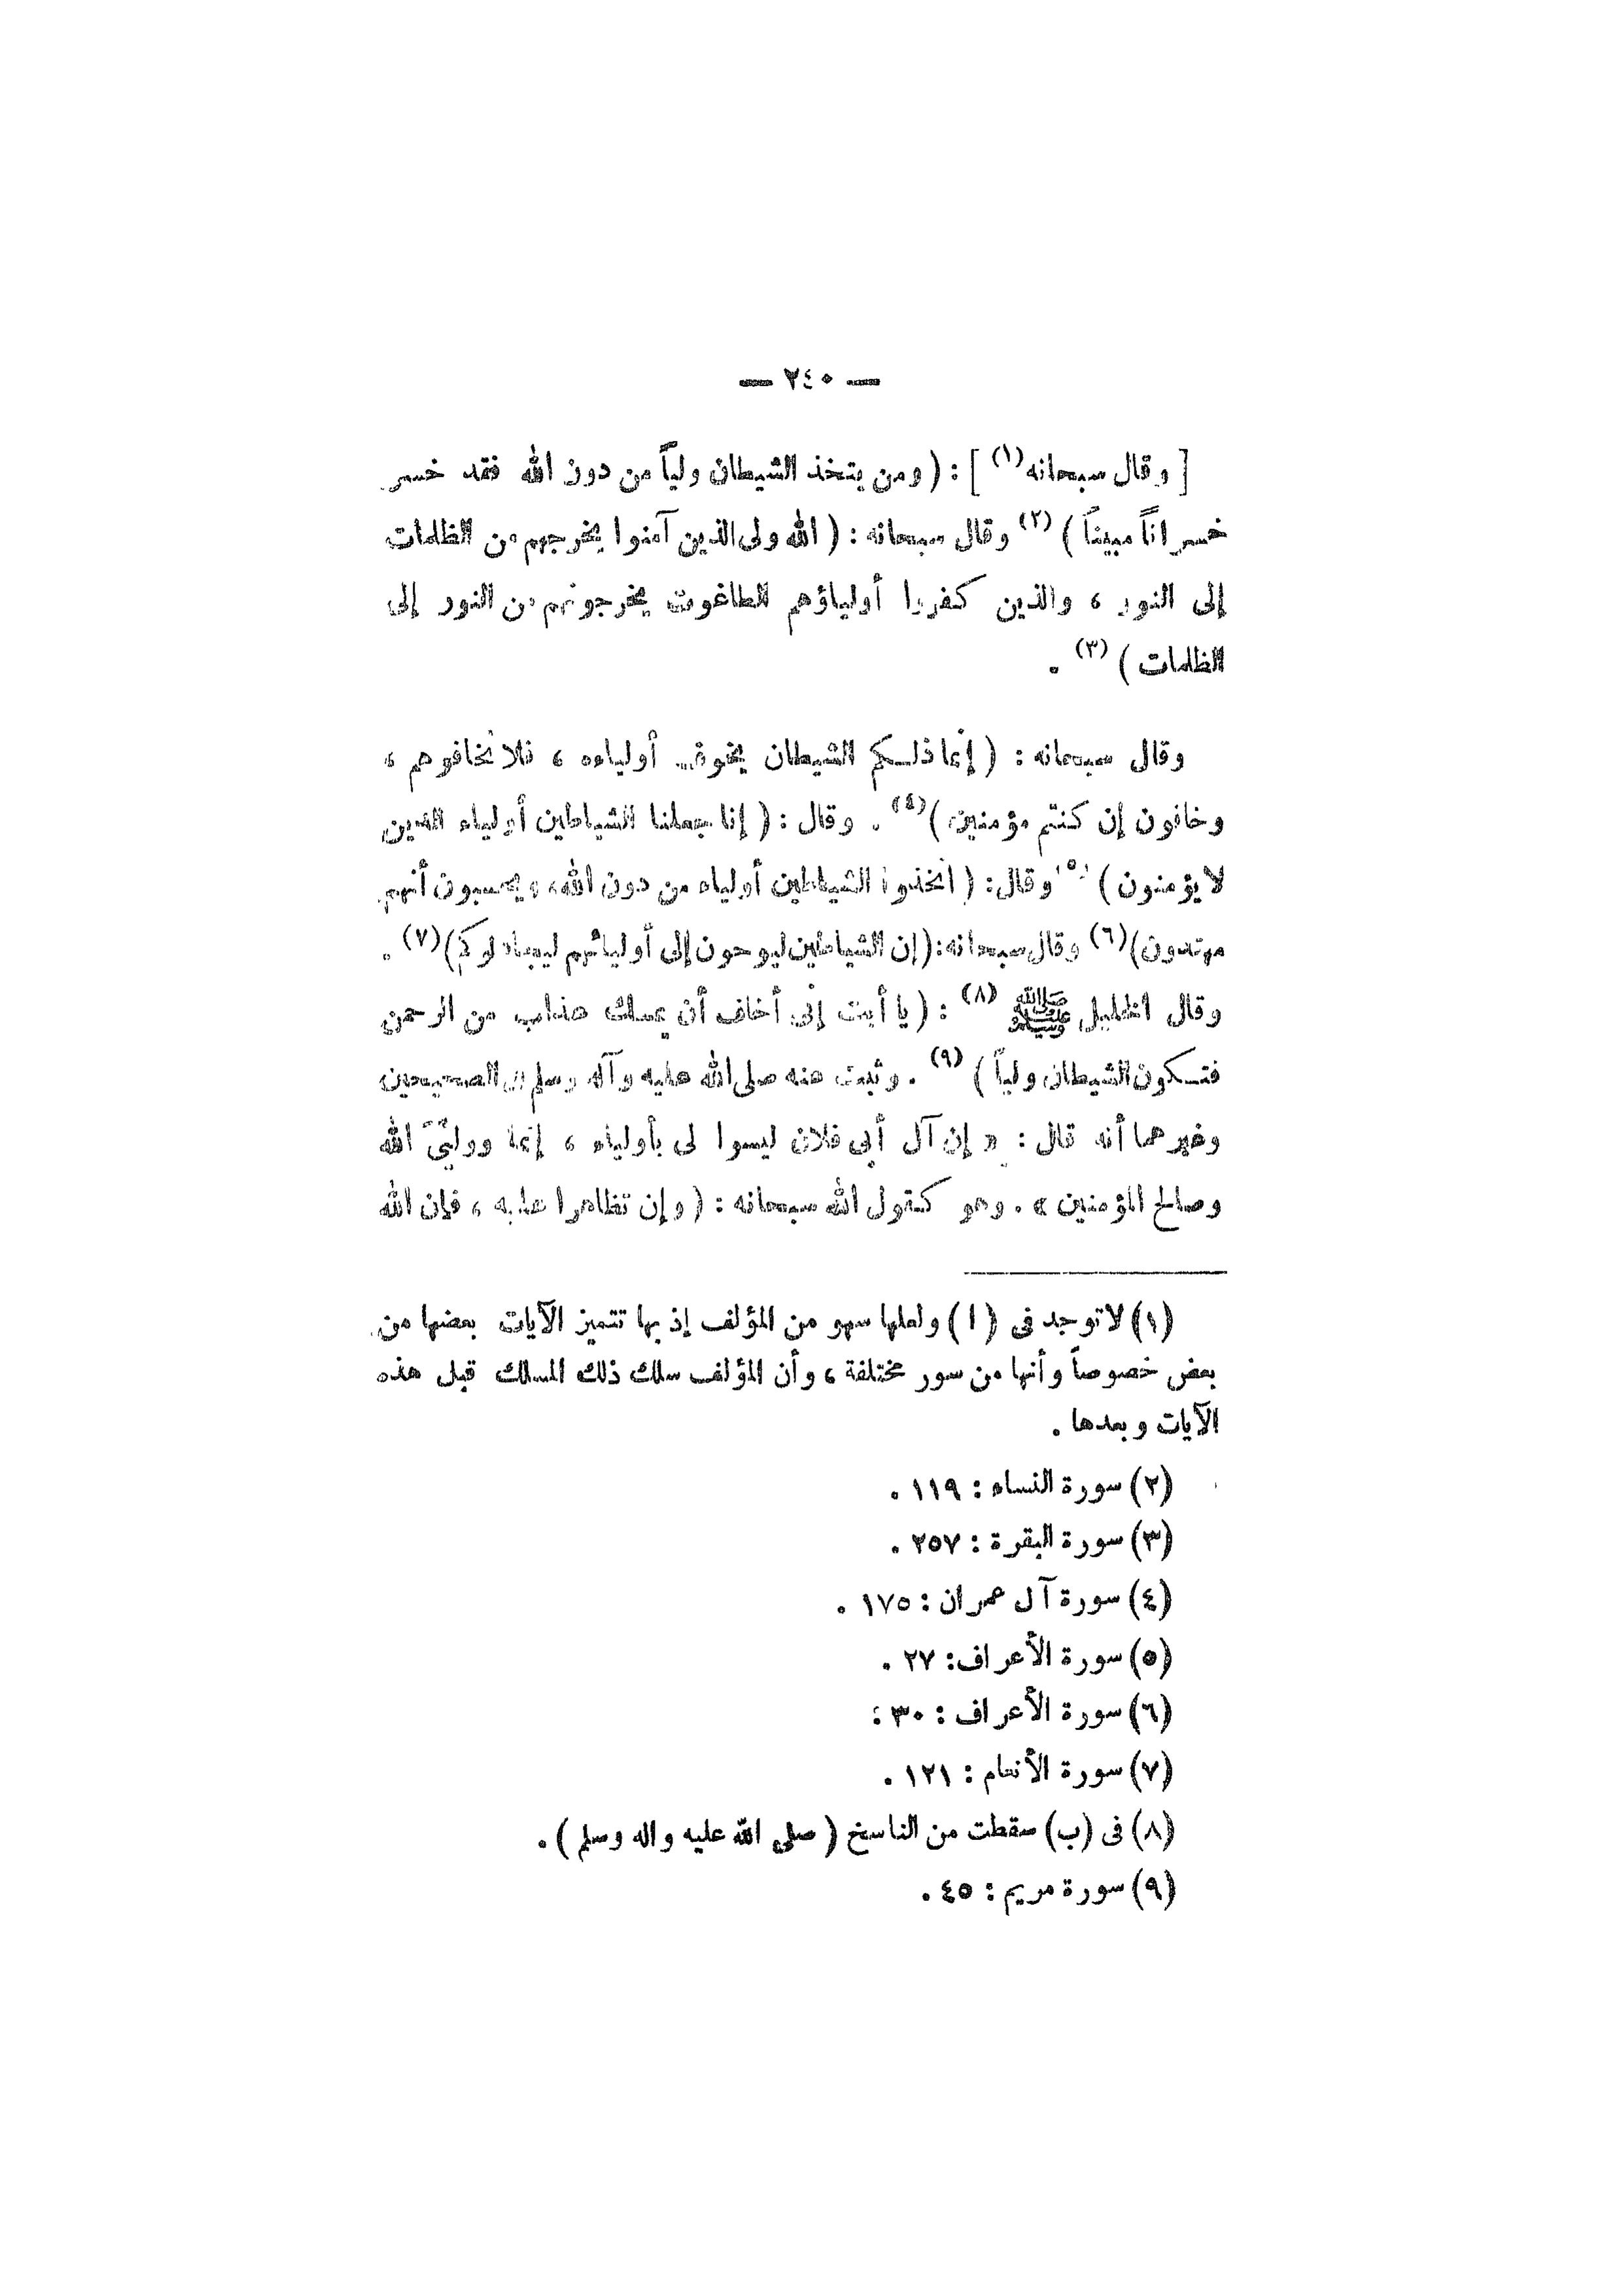 — ٢٤٠ —
[ وقال سبحانه(١) ] : ( ومن يتخذ الشيطان ولياً من دون الله فقد خسر
خسراناً مبيناً ) (٢) وقال سبحانه : ( الله ولى الذين آمنوا يخرجهم من الظلمات
إلى النور ، والذين كفروا أولياؤهم الطاغوت يخرجونهم من النور إلى
الظلمات ) (٣) .
وقال سبحانه : ( إنما ذلكم الشيطان يخوف أولياءه ، فلا تخافوهم ،
وخافون إن كنتم مؤمنين )(٤) . وقال : ( إنا جعلنا الشياطين أولياء للذين
لا يؤمنون ) (٥) وقال : ( اتخذوا الشياطين أولياء من دون الله ، ويحسبون أنهم
مهتدون)(٦) وقال سبحانه:(إن الشياطين ليوحون إلى أوليائهم ليجادلوكم)(٧) .
وقال الخليل ﷺ (٨) : ( يا أبت إنى أخاف أن يمسك عذاب من الرحمن
فتكون الشيطان ولياً ) (٩) . وثبت عنه صلى الله عليه وآله وسلم فى الصحيحين
وغيرهما أنه قال : « إن آل أبى فلان ليسوا لى بأولياء ، إنما ووليّىَ الله
وصالح المؤمنين » . وهو كقول الله سبحانه : ( وإن تظاهرا عليه ، فإن الله
(١) لا توجد فى ( ا ) ولعلها سهو من المؤلف إذ بها تتميز الآيات بعضها من
بعض خصوصاً وأنها من سور مختلفة ، وأن المؤلف سلك ذلك المسلك قبل هذه
الآيات وبعدها .
(٢) سورة النساء : ١١٩ .
(٣) سورة البقرة : ٢٥٧ .
(٤) سورة آل عمران : ١٧٥ .
(٥) سورة الأعراف: ٢٧ .
(٦) سورة الأعراف : ٣٠ :
(٧) سورة الأنعام : ١٢١ .
(٨) فى (ب) سقطت من الناسخ ( صلى الله عليه واله وسلم ) .
(٩) سورة مريم : ٤٥ .